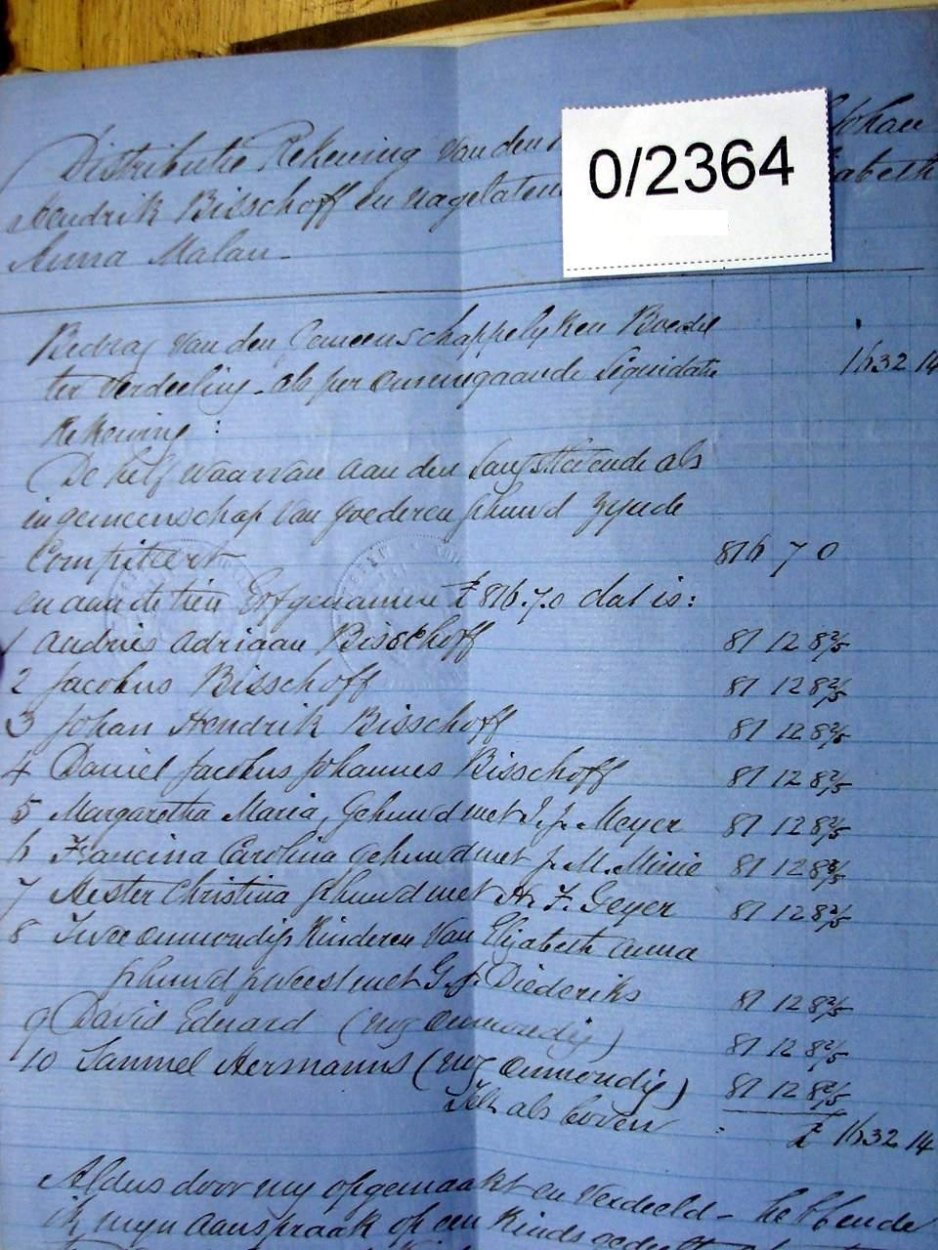 Distributie Rekening van den Johan
0/2364
Hendrik Bisschoff en nagelaten abeth
Anna Malan -
Bedrag van den Gemeenschappelyken Boedel
ter verdeeling - als per annexgaande Liquidatie 1632 14
Rekening :
De helf waarvan aan den Langstlevende als
in gemeenschap van goederen gehuwd zynde
Competeert 816 7 0
en aan de tien Erfgenamen £ 816.7.0 dat is:
1 Andries Adriaan Bisschoff 81 12 8 2/5
2 Jacobus Bisschoff 81 12 8 2/5
3 Johan Hendrik Bisschoff 81 12 8 2/5
4 Daniel Jacobus Johannes Bisschoff 81 12 8 2/5
5 Margaretha Maria, Gehuwd met J. J. Meyer 81 12 8 2/5
6 Francina Carolina gehuwd met J. M. Minie 81 12 8 2/5
7 Hester Christina gehuwd met H. F. Geyer 81 12 8 2/5
8 Twee onmondige Kinderen van Elizabeth Anna
gehuwd geweest met G. J. Diederiks 81 12 8 2/5
9 David Eduard (nog onmondig) 81 12 8 2/5
10 Samuel Hermanus (nog onmondig) 81 12 8 2/5
als boven : £ 1632 14
Aldus door my opgemaakt en verdeeld - hebbende
ik myn aanspraak op een Kinds gedeelte